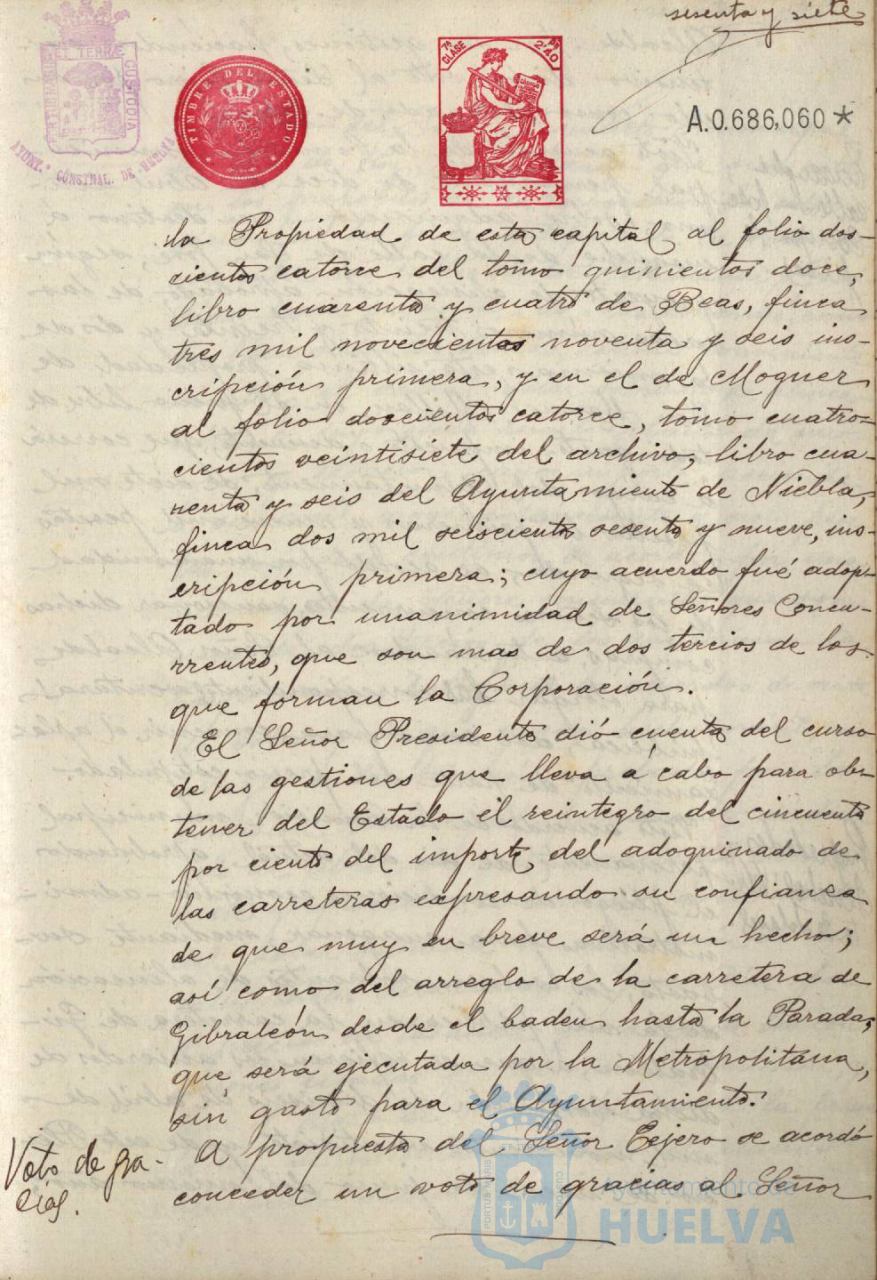 sesenta y siete
TERRÆ CUSTODIA
AYUNT.º CONSTNAL. DE HUELVA
TIMBRE DEL ESTADO
7ª CLASE 2'40
A.0.686,060*
la Propiedad de esta capital, al folio dos-
cientos catorce del tomo quinientos doce,
libro cuarenta y cuatro de Beas, finca
tres mil novecientos noventa y seis ins-
cripción primera, y en el de Moguer
al folio doscientos catorce, tomo cuatro-
cientos veintisiete del archivo, libro cua-
renta y seis del Ayuntamiento de Niebla,
finca dos mil seiscientos sesenta y nueve, ins-
cripción primera; cuyo acuerdo fué adop-
tado por unanimidad de Señores Concu-
rrentes, que son mas de dos tercios de los
que forman la Corporación.
El Señor Presidente dió cuenta del curso
de las gestiones que lleva á cabo para ob-
tener del Estado el reintegro del cincuenta
por ciento del importe del adoquinado de
las carreteras expresando su confianza
de que muy en breve será un hecho;
así como del arreglo de la carretera de
Gibraleón desde el baden hasta la Parada,
que será ejecutada por la Metropolitana,
sin gasto para el Ayuntamiento.
Voto de gra-
cias.
A propuesta del Señor Tejero se acordó
conceder un voto de gracias al Señor
Ayuntamiento de
HUELVA